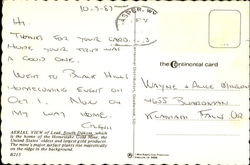 (10-9-87)
HI,
THANKS FOR YOUR CARD.
HOPE YOUR TRIP WAS
A GOOD ONE.
WENT TO BLACK HILLS
HOMECOMING EVENT ON
OCT 1. NOW ON
MY WAY HOME.
AERIAL VIEW of Lead, South Dakota, which
is the home of the Homestake Gold Mine, the
United States' oldest and largest gold producer.
The mine's major surface plants rise majestically
on the edge in the background.
8215
CASPER, WY
the Continental card
WAYNE & ALICE
BOARDMAN
KLAMATH FALLS OR